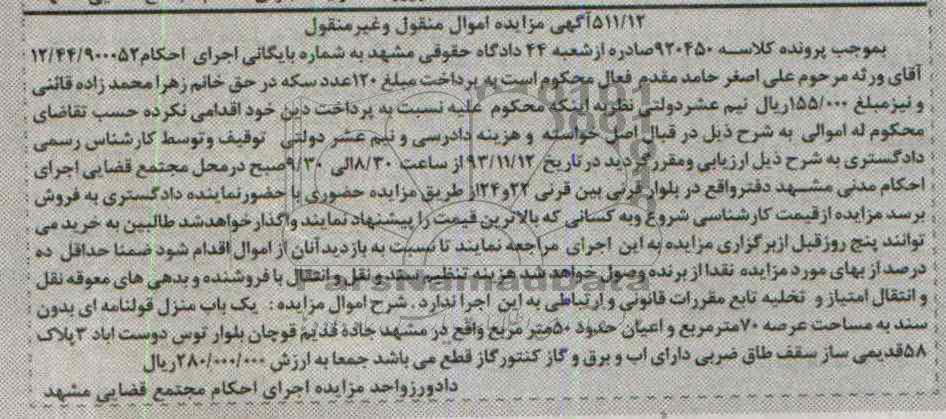 ۵۱۱/۱۲آگهی مزایده اموال منقول وغیرمنقول
بموجب پرونده کلاسه ۹۲۰۴۵۰صادره ازشعبه ۴۴ دادگاه حقوقی مشهد به شماره بایگانی اجرای احکام۱۲/۴۴/۹۰۰۰۵۲
آقای ورثه مرحوم علی اصغر حامد مقدم فعال محکوم است به پرداخت مبلغ ۱۲۰عدد سکه در حق خانم زهرا محمد زاده قائنی
و نیز مبلغ ۱۵۵/۰۰۰ریال نیم عشردولتی نظربه اینکه محکوم علیه نسبت به پرداخت دین خود اقدامی نکرده حسب تقاضای
محکوم له اموالی به شرح ذیل در قبال اصل خواسته و هزینه دادرسی و نیم عشر دولتی توقیف وتوسط کارشناس رسمی
دادگستری به شرح ذیل ارزیابی ومقررگردید درتاریخ ۹۳/۱۱/۱۲ از ساعت ۸/۳۰الی ۹/۳۰صبح درمحل مجتمع قضایی اجرای
احکام مدنی مشهد دفترواقع در بلوار قرنی بین قرنی ۲۲و۲۴از طریق مزایده حضوری با حضورنماینده دادگستری به فروش
برسد مزایده ازقیمت کارشناسی شروع وبه کسانی که بالاترین قیمت را پیشنهاد نمایند واگذارخواهدشد طالبین به خرید می
توانند پنج روزقبل ازبرگزاری مزایده به این اجرای مراجعه نمایند تا نسبت به بازدیدآنان از اموال اقدام شود ضمنا حداقل ده
درصد از بهای مورد مزایده نقدا از برنده وصول خواهد شد هزینه تنظیم سند و نقل و انتقال با فروشنده و بدهی های معوقه نقل
و انتقال امتیاز و تخلیه تابع مقررات قانونی و ارتباطی به این اجرا ندارد. شرح اموال مزایده: یک باب منزل قولنامه ای بدون
سند به مساحت عرصه ۷۰مترمربع و اعیان حدود ۵۰متر مربع واقع در مشهد جاده قدیم قوچان بلوار توس دوست اباد ۳پلاک
۵۸قدیمی ساز سقف طاق ضربی دارای اب و برق و گاز کنتورگاز قطع می باشد جمعا به ارزش ۲۸۰/۰۰۰/۰۰۰ریال
دادورزواحد مزایده اجرای احکام مجتمع قضایی مشهد
ParsNamadData